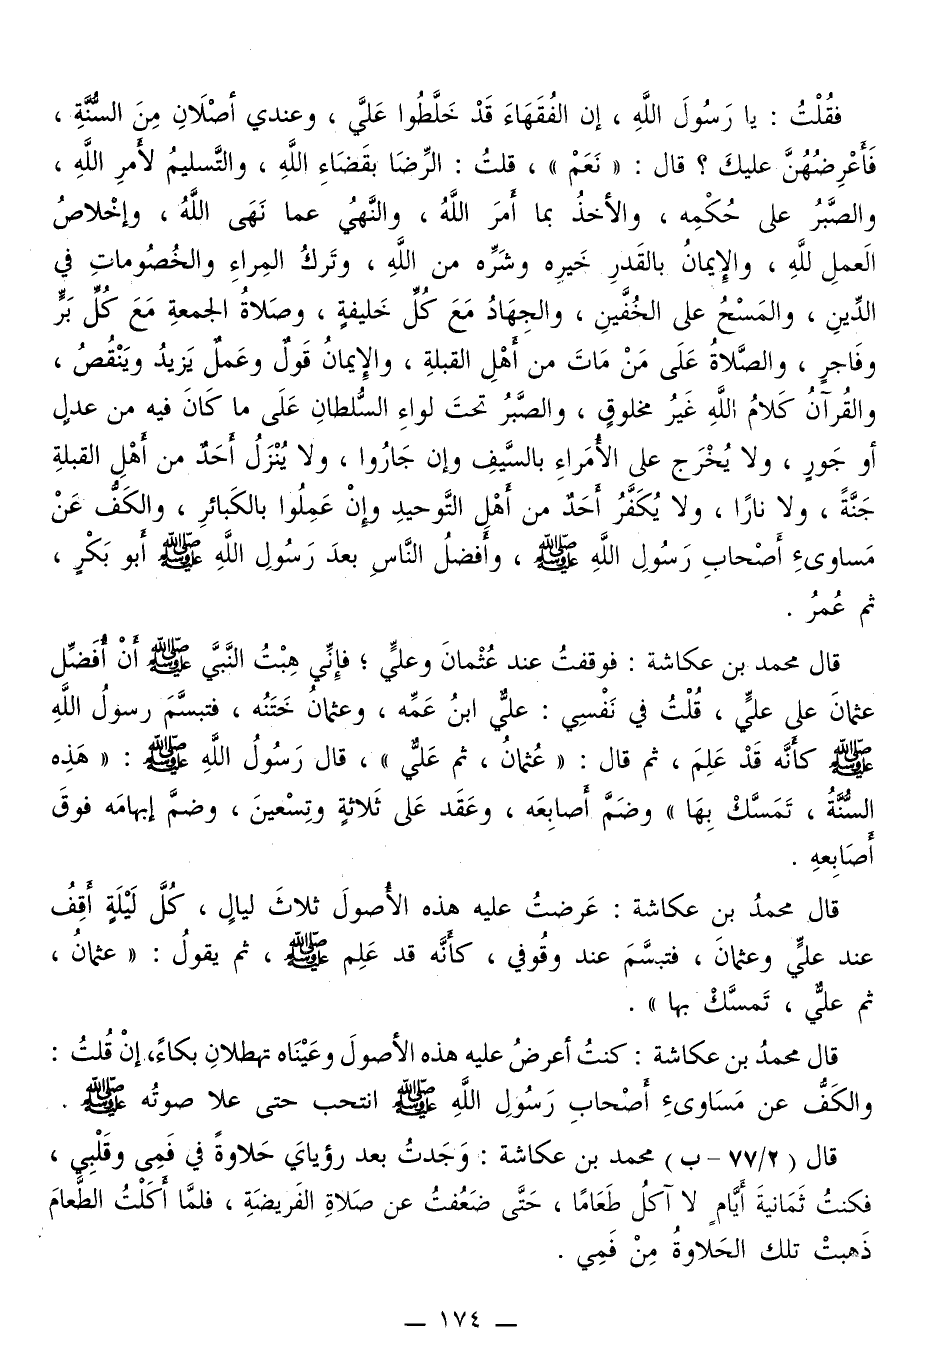 فقُلْتُ : يا رَسُولَ اللَّهِ ، إن الفُقَهَاءَ قَدْ خَلَّطُوا عَلَيَّ ، وعندي أصْلَانِ مِنَ السُّنَّةِ ،
فَأَعْرِضُهُنَّ عليكَ ؟ قال : « نَعَمْ » ، قلتُ : الرِّضَا بقَضَاءِ اللَّهِ ، والتَّسليمُ لأَمرِ اللَّهِ ،
والصَّبرُ على حُكْمِه ، والأخذُ بما أَمرَ اللَّهُ ، والنَّهيُ عما نَهَى اللَّهُ ، وإخْلاصُ
العَملِ للَّهِ ، والإِيمانُ بالقَدرِ خَيرِه وشَرِّه من اللَّهِ ، وتَركُ المِراءِ والخُصُوماتِ في
الدِّينِ ، والمَسْحُ على الخُفَّينِ ، والجِهَادُ مَعَ كُلِّ خَليفةٍ ، وصَلَاةُ الجمعةِ مَعَ كُلِّ بَرٍّ
وفَاجرٍ ، والصَّلاةُ عَلَى مَنْ مَاتَ من أَهْلِ القبلةِ ، والإِيمانُ قَولٌ وعَملٌ يَزيدُ ويَنْقُصُ ،
والقُرآنُ كَلامُ اللَّهِ غَيرُ مخلوقٍ ، والصَّبرُ تحتَ لواءِ السُّلطانِ عَلَى ما كَانَ فيه من عدلٍ
أو جَورٍ ، ولا يُخْرَج على الأُمَراءِ بالسَّيفِ وإن جَارُوا ، ولا يُنْزَلُ أَحَدٌ من أَهْلِ القبلةِ
جَنَّةً ، ولا نارًا ، ولا يُكَفَّرُ أَحَدٌ من أَهْلِ التَّوحيدِ وإنْ عَمِلُوا بالكَبائرِ ، والكَفُّ عَنْ
مَساوىءِ أَصْحابِ رَسُولِ اللَّهِ ﷺ ، وأَفضلُ النَّاسِ بعدَ رَسُولِ اللَّهِ ﷺ أَبو بَكْرٍ ،
ثم عُمرُ .
قال محمد بن عكاشة : فوقفتُ عند عُثْمانَ وعليٍّ ؛ فإنِّي هِبْتُ النَّبيَّ ﷺ أَنْ أُفَضِّل
عثمانَ على عليٍّ ، قُلْتُ في نَفْسِي : عليٌّ ابنُ عَمِّه ، وعثمانُ خَتَنُه ، فتبسَّمَ رسولُ اللَّهِ
ﷺ كأنَّه قَدْ عَلِمَ ، ثم قال : « عُثمانُ ، ثم عَليٌّ » ، قال رَسُولُ اللَّهِ ﷺ : « هَذِه
السُّنَّةُ ، تَمَسَّكْ بِهَا » وضَمَّ أَصابِعَه ، وعَقَد عَلى ثَلاثةٍ وتِسْعينَ ، وضمَّ إبهامَه فوقَ
أَصَابِعهِ .
قال محمدُ بن عكاشة : عَرضتُ عليه هذه الأُصولَ ثلاثَ ليالٍ ، كُلَّ لَيْلَةٍ أَقِفُ
عند عليٍّ وعثمانَ ، فتبسَّمَ عند وقُوفي ، كأَنَّه قد عَلِم ﷺ ، ثم يقولُ : « عثمانُ ،
ثم عليٌّ ، تَمسَّكْ بها » .
قال محمدُ بن عكاشة : كنتُ أعرضُ عليه هذه الأصولَ وعَيْنَاه تهطلانِ بكاءً، إنْ قُلتُ :
والكَفُّ عن مَسَاوىءِ أَصْحابِ رَسُولِ اللَّهِ ﷺ انتحب حتى علا صوتُه ﷺ .
قال ( ٧٧/٢ - ب ) محمد بن عكاشة : وَجَدتُ بعد رؤيايَ حَلاوةً في فَمِي وقَلْبِي ،
فكنتُ ثَمَانيةَ أَيَّامٍ لا آكلُ طَعَامًا ، حَتَّى ضَعُفتُ عن صَلاةِ الفَريضةِ ، فلمَّا أَكَلْتُ الطَّعامَ
ذَهبتْ تلك الحَلاوةُ مِنْ فَمِي .
— ١٧٤ —